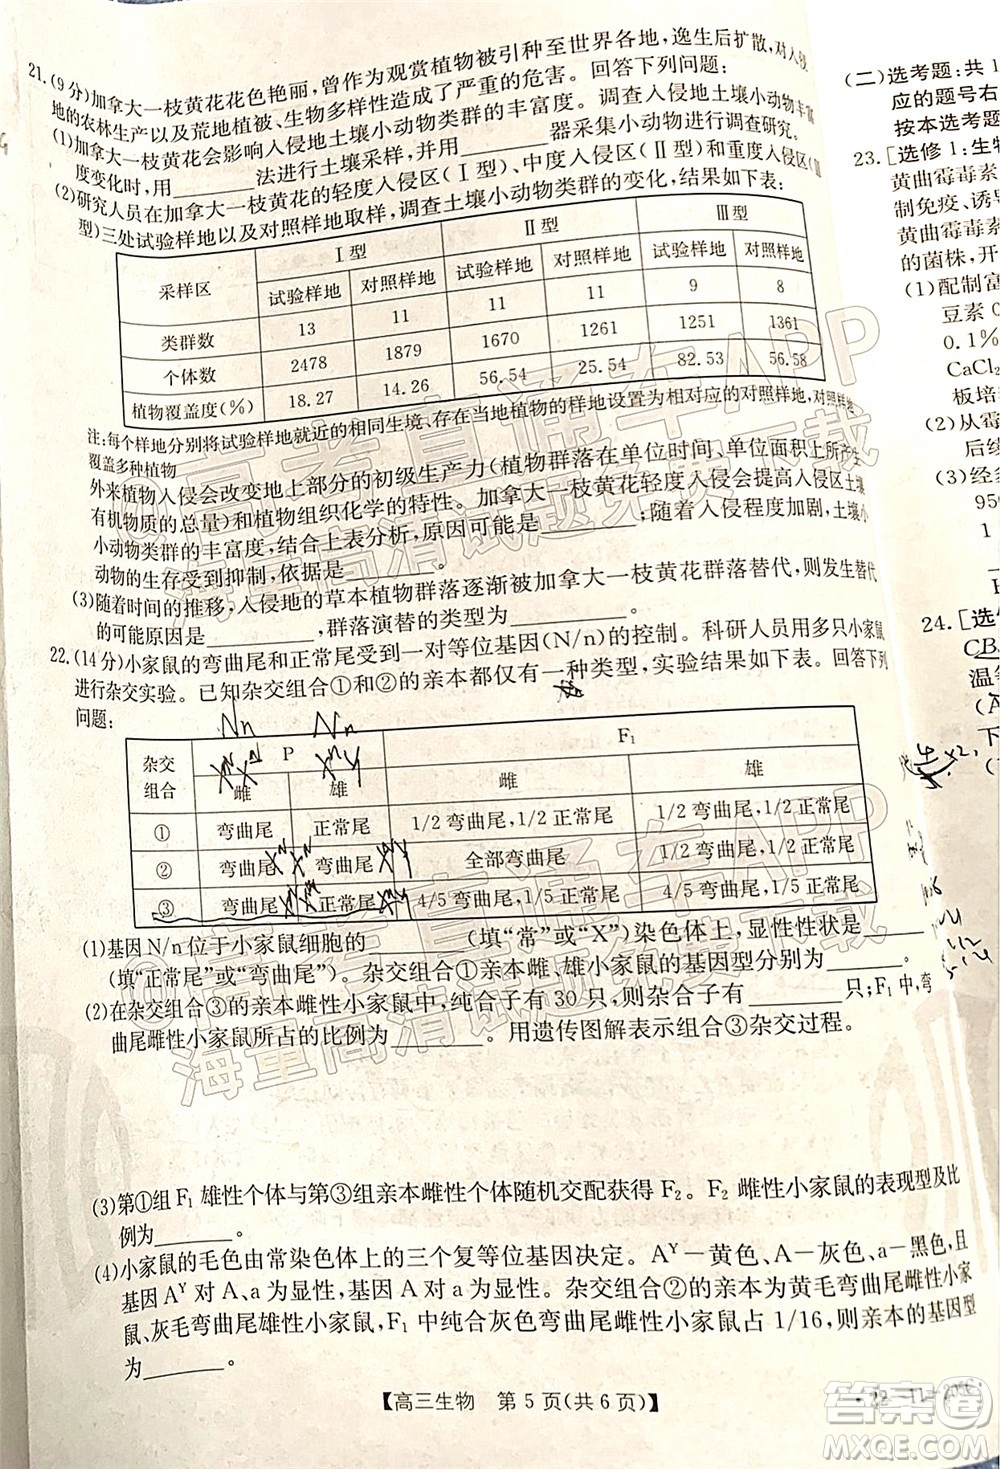 21.(9分)加拿大一枝黄花花色艳丽,曾作为观赏植物被引种至世界各地,逸生后扩散,对入侵
地的农林生产以及荒地植被、生物多样性产生了严重的危害。回答下列问题:
(1)加拿大一枝黄花会影响入侵地土壤小动物类群的丰富度。调查入侵地土壤小动物丰富
度变化时,用________法进行土壤采样,并用________器采集小动物进行调查研究。
(2)研究人员在加拿大一枝黄花的轻度入侵区(Ⅰ型)、中度入侵区(Ⅱ型)和重度入侵区(Ⅲ
型)三处试验样地以及对照样地取样,调查土壤小动物类群的变化,结果如下表:
采样区 Ⅰ型 Ⅱ型 Ⅲ型
试验样地 对照样地 试验样地 对照样地 试验样地 对照样地
类群数 13 11 11 11 9 8
个体数 2478 1879 1670 1261 1251 1361
植物覆盖度(%) 18.27 14.26 56.54 25.54 82.53 56.58
注:每个样地分别将试验样地就近的相同生境、存在当地植物的样地设置为相对应的对照样地,对照样地
覆盖多种植物
外来植物入侵会改变地上部分的初级生产力(植物群落在单位时间、单位面积上所产生
有机物质的总量)和植物组织化学的特性。加拿大一枝黄花轻度入侵会提高入侵区土壤
小动物类群的丰富度,结合上表分析,原因可能是________;随着入侵程度加剧,土壤小
动物的生存受到抑制,原因可能是________。
(3)随着时间的推移,入侵地的草本植物群落逐渐被加拿大一枝黄花群落替代,发生替代
的可能原因是________,群落演替的类型为________。
22.(14分)小家鼠的弯曲尾和正常尾受到一对等位基因(N/n)的控制。科研人员用多只小家鼠
进行杂交实验。已知杂交组合①和②的亲本都仅有一种类型,实验结果如表。回答下列
问题:
Nn Nn
杂交组合 P F₁
雌 雄 雌 雄
① 弯曲尾 正常尾 1/2弯曲尾,1/2正常尾 1/2弯曲尾,1/2正常尾
② 弯曲尾 弯曲尾 全部弯曲尾 1/2弯曲尾,1/2正常尾
③ 弯曲尾 正常尾 4/5弯曲尾,1/5正常尾 4/5弯曲尾,1/5正常尾
(1)基因N/n位于小家鼠细胞的________(填“常”或“X”)染色体上,显性性状是________
(填“正常尾”或“弯曲尾”)。杂交组合①亲本雌、雄小家鼠的基因型分别为________。
(2)在杂交组合③的亲本雌性小家鼠中,纯合子有30只,则杂合子有________只;F₁中,弯
曲尾雌性小家鼠所占的比例为________。用遗传图解表示组合③杂交过程。
(3)第①组F₁雄性个体与第③组亲本雌性个体随机交配获得F₂。F₂雌性小家鼠的表现型及比
例为________。
(4)小家鼠的毛色由常染色体上的三个复等位基因决定。Aʸ—黄色、A—灰色、a—黑色,且
基因Aʸ对A、a为显性,基因A对a为显性。杂交组合②的亲本为黄毛弯曲尾雌性小家
鼠、灰毛弯曲尾雄性小家鼠,F₁中纯合灰色弯曲尾雌性小家鼠占1/16,则亲本的基因型
为________。
【高三生物 第5页(共6页)】
(二)选考题:共1
应的题号右
按本选考题
23.[选修1:生物
黄曲霉毒素
制免疫、诱导
黄曲霉毒素
的菌株,开
(1)配制富
豆素0
0.1%
CaCl₂
板培
(2)从
后续
(3)经
95
1
24.[选
CB
温
(A
下
@高考直通车APP
海量高清试题免费下载
答案圈
MXQE.COM